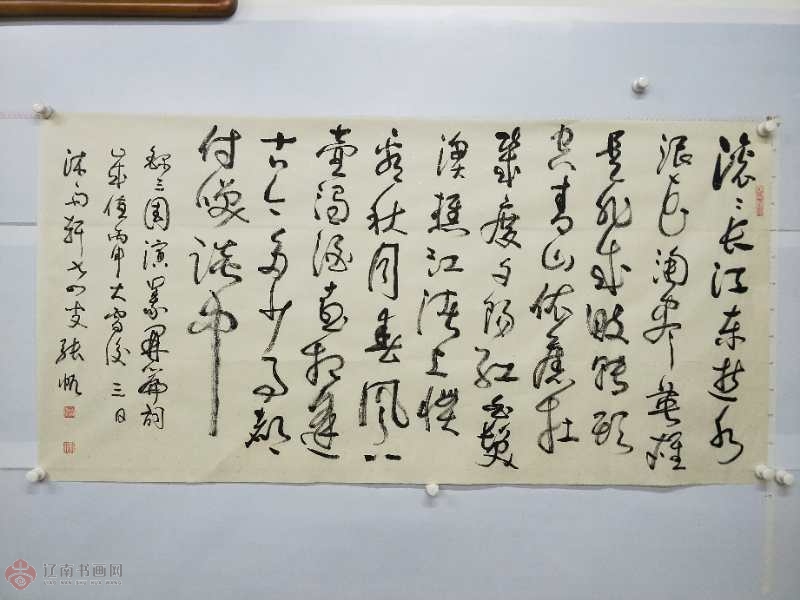 滚〻长江东逝水
浪花淘尽英雄
是非成败转头
空青山依旧在
几度夕阳红白髮
渔樵江渚上惯
看秋月春風一
壶浊酒喜相逢
古今多少事都
付笑谈中
三國演義開篇词
岁值丙申大雪後三日
沐雨轩 张
辽南书画网
LIAO NAN SHU HUA WANG